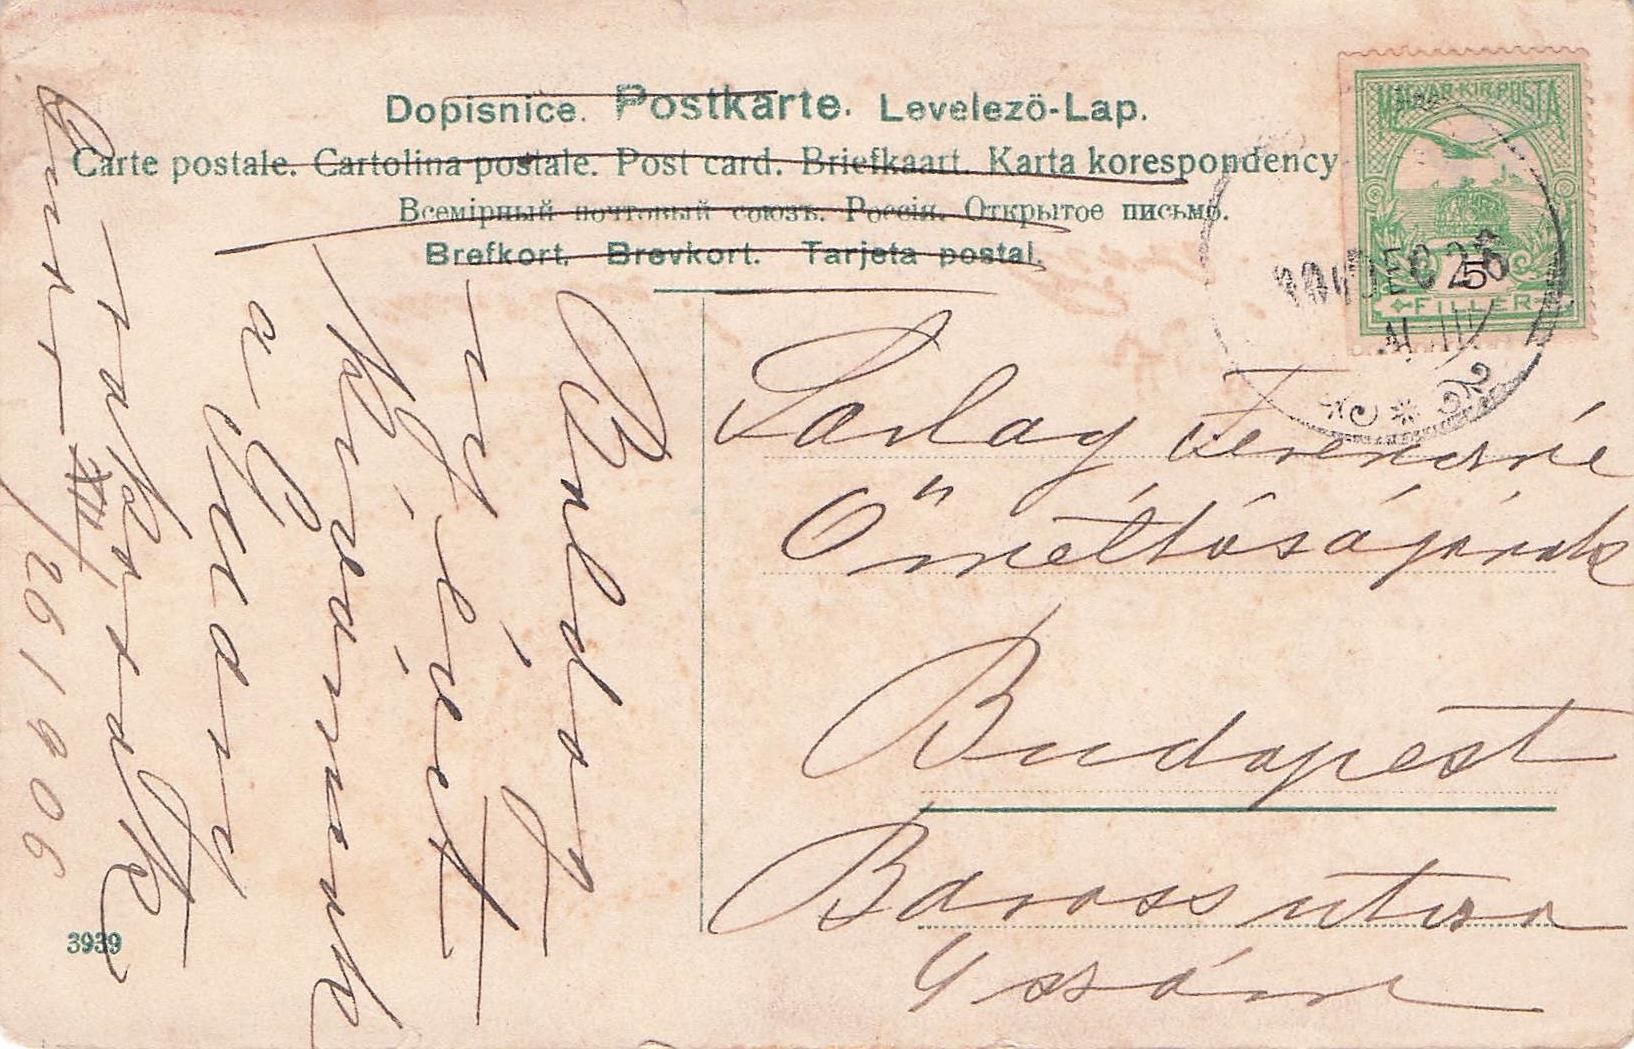 Dopisnice. Postkarte. Levelező-Lap.
Carte postale. Cartolina postale. Post card. Briefkaart. Karta korespondency
Всемірный почтовый союзъ. Россія. Открытое письмо.
Brefkort. Brevkort. Tarjeta postal.
MAGYAR KIR. POSTA
5
FILLER
Sárlay Ferencné
Őméltóságának
Budapest
Baross utca
4 szám
Boldog
új évet
kivánunk
a
XII
26 1906
3939